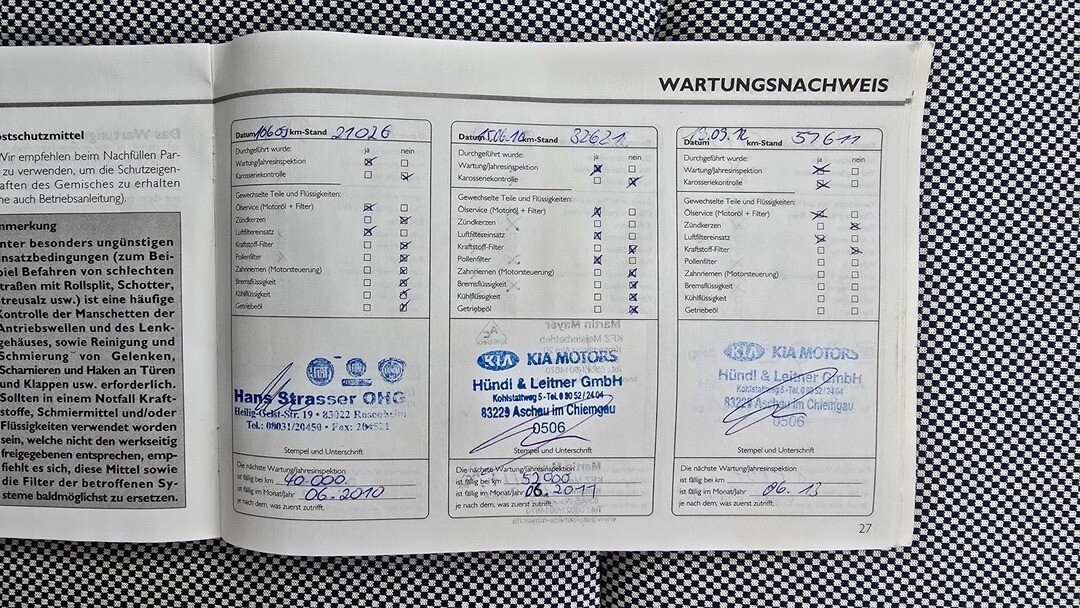 WARTUNGSNACHWEIS
ostschutzmittel
Wir empfehlen beim Nachfüllen Par-
zu verwenden, um die Schutzeigen-
aften des Gemisches zu erhalten
he auch Betriebsanleitung).
nmerkung
nter besonders ungünstigen
nsatzbedingungen (zum Bei-
piel Befahren von schlechten
traßen mit Rollsplit, Schotter,
treusalz usw.) ist eine häufige
Kontrolle der Manschetten der
Antriebswellen und des Lenk-
gehäuses, sowie Reinigung und
Schmierung von Gelenken,
Scharnieren und Haken an Türen
und Klappen usw. erforderlich.
Sollten in einem Notfall Kraft-
stoffe, Schmiermittel und/oder
Flüssigkeiten verwendet worden
sein, welche nicht den werkseitig
freigegebenen entsprechen, emp-
fiehlt es sich, diese Mittel sowie
die Filter der betroffenen Sy-
steme baldmöglichst zu ersetzen.
Datum km-Stand 21026
Durchgeführt wurde: ja nein
Wartung/Jahresinspektion
Karosseriekontrolle
Gewechselte Teile und Flüssigkeiten:
Ölservice (Motoröl + Filter)
Zündkerzen
Luftfiltereinsatz
Kraftstoff-Filter
Pollenfilter
Zahnriemen (Motorsteuerung)
Bremsflüssigkeit
Kühlflüssigkeit
Getriebeöl
Hans Strasser OHG
Heilig-Geist-Str. 19 • 83022 Rosenheim
Tel.: 08031/20450 • Fax: 204521
Stempel und Unterschrift
Die nächste Wartung/Jahresinspektion
ist fällig bei km 40.000
ist fällig im Monat/Jahr 06.2010
je nach dem, was zuerst zutrifft.
Datum 15.06.10 km-Stand 32621
Durchgeführt wurde: ja nein
Wartung/Jahresinspektion
Karosseriekontrolle
Gewechselte Teile und Flüssigkeiten:
Ölservice (Motoröl + Filter)
Zündkerzen
Luftfiltereinsatz
Kraftstoff-Filter
Pollenfilter
Zahnriemen (Motorsteuerung)
Bremsflüssigkeit
Kühlflüssigkeit
Getriebeöl
KIA KIA MOTORS
Hündl & Leitner GmbH
Kohlstattweg 5 - Tel. 0 80 52 / 24 04
83229 Aschau im Chiemgau
0506
Stempel und Unterschrift
Die nächste Wartung/Jahresinspektion
ist fällig bei km 52000
ist fällig im Monat/Jahr 06.2011
je nach dem, was zuerst zutrifft.
Datum 13.09.12 km-Stand 57611
Durchgeführt wurde: ja nein
Wartung/Jahresinspektion
Karosseriekontrolle
Gewechselte Teile und Flüssigkeiten:
Ölservice (Motoröl + Filter)
Zündkerzen
Luftfiltereinsatz
Kraftstoff-Filter
Pollenfilter
Zahnriemen (Motorsteuerung)
Bremsflüssigkeit
Kühlflüssigkeit
Getriebeöl
KIA KIA MOTORS
Hündl & Leitner GmbH
Kohlstattweg 5 - Tel. 0 80 52 / 24 04
83229 Aschau im Chiemgau
0506
Stempel und Unterschrift
Die nächste Wartung/Jahresinspektion
ist fällig bei km
ist fällig im Monat/Jahr 06.13
je nach dem, was zuerst zutrifft.
27